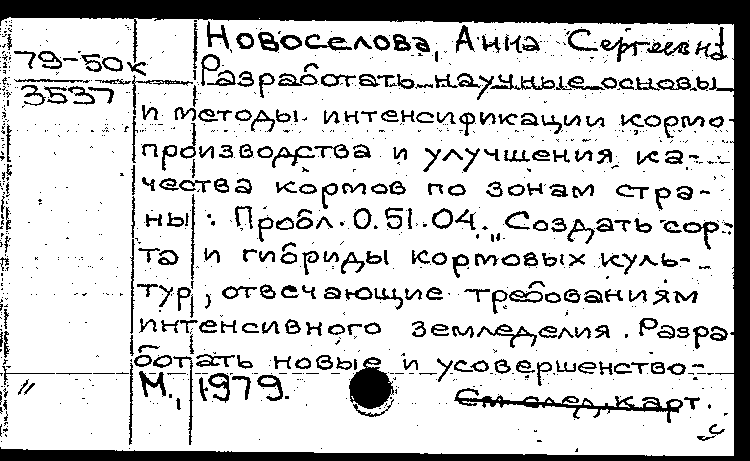 Новоселова, Анна Сергеевна
79-50к
Разработать научные основы
3537
и методы интенсификации кормо-
производства и улучшения ка-
чества кормов по зонам стра-
ны : Пробл. 0.51.04. „Создать сор-
та и гибриды кормовых куль-
тур, отвечающие требованиям
интенсивного земледелия. Разра-
ботать новые и усовершенство-
М., 1979.
См. след. карт.